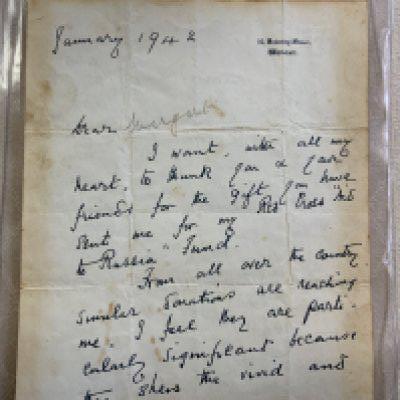 January 1942
Dear Margaret
I want, with all my
heart, to thank you & your
friends for the gift you have
sent me for my Red Cross "Aid
to Russia" Fund.
From all over the country
similar donations are reaching
me. I feel they are parti-
cularly significant because
they show the vivid and